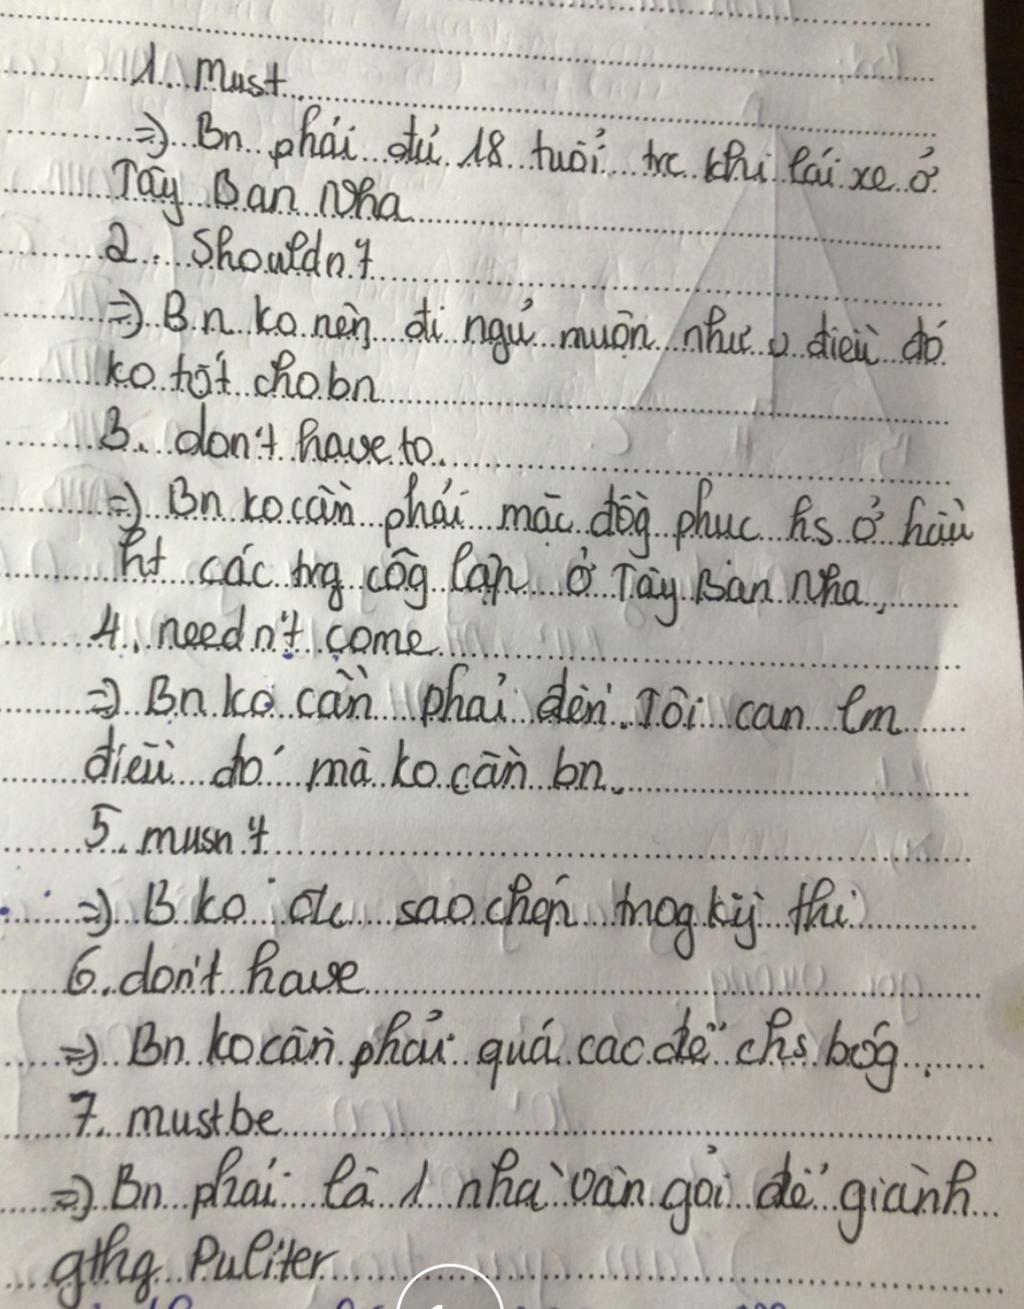 1. Must
=> Bn phải đủ 18 tuổi trc khi lái xe ở
Tây Ban Nha
2. Shouldn't
=> Bn ko nên đi ngủ muộn như v điều đó
ko tốt cho bn
3. don't have to.
=> Bn ko cần phải mặc đôg phục hs ở hầu
ht các trg côg lập ở Tây Ban Nha,
4. needn't come
=> Bn ko cần phải đến. Tôi can lm
điều đó mà ko cần bn.
5. musn't
=> B ko đc sao chép trog kỳ thi
6. don't have
=> Bn ko cần phải quá cao để chs bóg.
7. must be
=> Bn phải là 1 nhà văn giỏi để giành
gthg Puliter